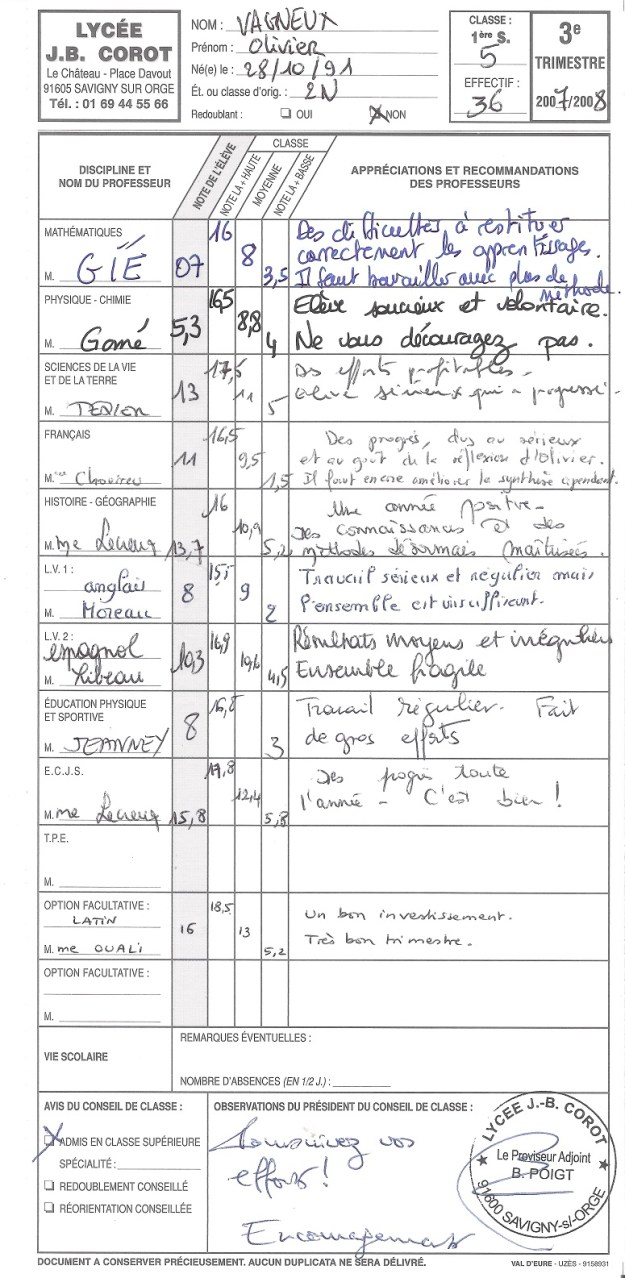 LYCÉE
J.B. COROT
Le Château - Place Davout
91605 SAVIGNY SUR ORGE
Tél. : 01 69 44 55 66
NOM : VAGNEUX
Prénom : Olivier
Né(e) le : 28/10/91
Ét. ou classe d'orig. : 2N
Redoublant : OUI NON
CLASSE :
1ère S.
5
EFFECTIF :
36
3e
TRIMESTRE
2007/2008
DISCIPLINE ET
NOM DU PROFESSEUR
NOTE DE L'ÉLÈVE
CLASSE
NOTE LA + HAUTE
MOYENNE
NOTE LA + BASSE
APPRÉCIATIONS ET RECOMMANDATIONS
DES PROFESSEURS
MATHÉMATIQUES
M. GIÉ
07 16 8 3,5
Des difficultés à restituer
correctement les apprentissages.
Il faut travailler avec plus de
méthode.
PHYSIQUE - CHIMIE
M. Gomé
5,3 16,5 8,8 4
Elève soucieux et volontaire.
Ne vous découragez pas.
SCIENCES DE LA VIE
ET DE LA TERRE
M.
13 17,5 11 5
Des efforts profitables -
élève sérieux qui a progressé -
FRANÇAIS
M.me
11 16,5 9,5 1,5
Des progrès, dus au sérieux
et au goût de la réflexion d'Olivier.
Il faut encore améliorer la synthèse cependant.
HISTOIRE - GÉOGRAPHIE
M. me Lecreux
13,7 16 10,9 5,2
Une année positive -
Des connaissances et des
méthodes désormais maîtrisées.
L.V. 1 :
anglais
M. Moreau
8 15,5 9 2
Travail sérieux et régulier mais
l'ensemble est insuffisant.
L.V. 2 :
espagnol
M. Ribeau
10,3 16,9 10,6 4,5
Résultats moyens et irréguliers
Ensemble fragile
ÉDUCATION PHYSIQUE
ET SPORTIVE
M. JEANNEY
8 16,8 3
Travail régulier. Fait
de gros efforts
E.C.J.S.
M. me Lecreux
15,8 17,8 12,4 5,8
Des progrès toute
l'année - C'est bien !
T.P.E.
M.
OPTION FACULTATIVE :
LATIN
M. me OUALI
16 18,5 13 5,2
Un bon investissement.
Très bon trimestre.
OPTION FACULTATIVE :
M.
VIE SCOLAIRE
REMARQUES ÉVENTUELLES :
NOMBRE D'ABSENCES (EN 1/2 J.) :
AVIS DU CONSEIL DE CLASSE :
ADMIS EN CLASSE SUPÉRIEURE
SPÉCIALITÉ :
REDOUBLEMENT CONSEILLÉ
RÉORIENTATION CONSEILLÉE
OBSERVATIONS DU PRÉSIDENT DU CONSEIL DE CLASSE :
Poursuivez vos
efforts !
Encouragements
LYCEE J.-B. COROT
Le Proviseur Adjoint
B. POIGT
91600 SAVIGNY-s/-ORGE
DOCUMENT A CONSERVER PRÉCIEUSEMENT. AUCUN DUPLICATA NE SERA DÉLIVRÉ.
VAL D'EURE - UZÈS - 9158931